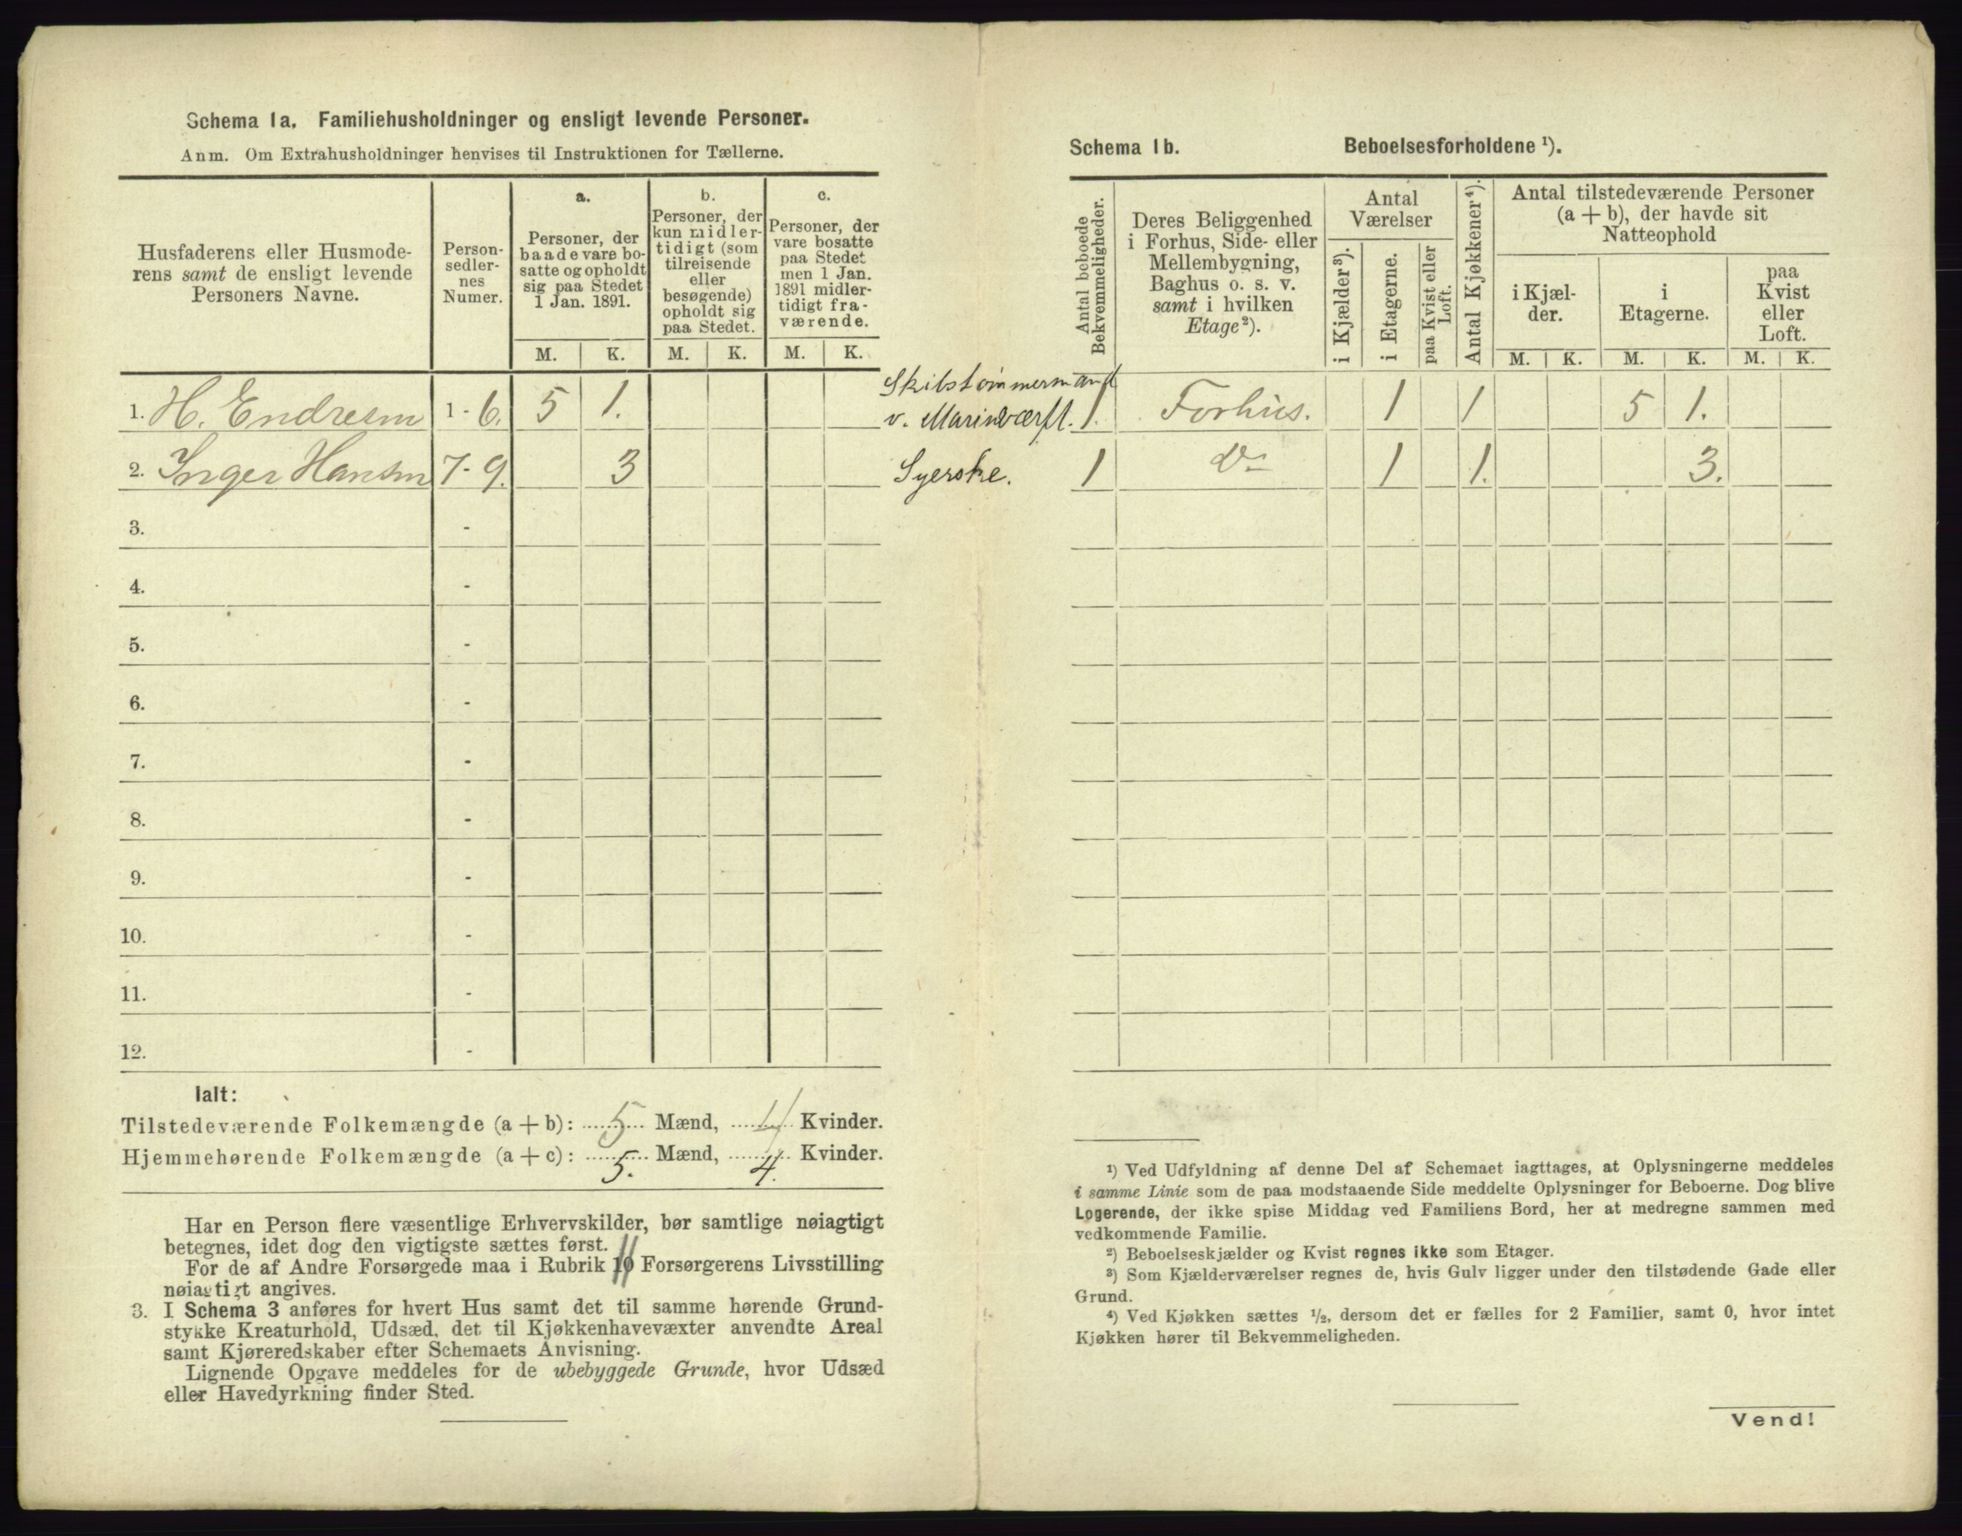 Schema 1a. Familiehusholdninger og ensligt levende Personer.
Anm. Om Extrahusholdninger henvises til Instruktionen for Tællerne.
Husfaderens eller Husmode-
rens samt de ensligt levende
Personers Navne.
Person-
sedler-
nes
Numer.
a.
Personer, der
baade vare bo-
satte og opholdt
sig paa Stedet
1 Jan. 1891.
b.
Personer, der
kun midler-
tidigt (som
tilreisende
eller
besøgende)
opholdt sig
paa Stedet.
c.
Personer, der
vare bosatte
paa Stedet
men 1 Jan.
1891 midler-
tidigt fra-
værende.
M. K. M. K. M. K.
1. H. Endresen 1 - 6. 5 1.
2. Inger Hansen 7 - 9. 3
3. -
4. -
5. -
6. -
7. -
8. -
9. -
10. -
11. -
12. -
Ialt:
Tilstedeværende Folkemængde (a + b): 5 Mænd, 4 Kvinder.
Hjemmehørende Folkemængde (a + c): 5. Mænd, 4. Kvinder.
Har en Person flere væsentlige Erhvervskilder, bør samtlige nøiagtigt
betegnes, idet dog den vigtigste sættes først.
For de af Andre Forsørgede maa i Rubrik 10 11 Forsørgerens Livsstilling
nøiagtigt angives.
3. I Schema 3 anføres for hvert Hus samt det til samme hørende Grund-
stykke Kreaturhold, Udsæd, det til Kjøkkenhavevæxter anvendte Areal
samt Kjøreredskaber efter Schemaets Anvisning.
Lignende Opgave meddeles for de ubebyggede Grunde, hvor Udsæd
eller Havedyrkning finder Sted.
Schema 1b. Beboelsesforholdene ¹).
Antal beboede
Bekvemmeligheder.
Deres Beliggenhed
i Forhus, Side- eller
Mellembygning,
Baghus o. s. v.
samt i hvilken
Etage²).
Antal
Værelser
i Kjælder³).
i Etagerne.
paa Kvist eller
Loft.
Antal Kjøkkener⁴).
Antal tilstedeværende Personer
(a + b), der havde sit
Natteophold
i Kjæl-
der.
i
Etagerne.
paa
Kvist
eller
Loft.
M. K. M. K. M. K.
Skibstømmermand
v. Marineværft. 1. Forhus. 1 1 5 1.
Syerske. 1 Do 1 1. 3.
¹) Ved Udfyldning af denne Del af Schemaet iagttages, at Oplysningerne meddeles
i samme Linie som de paa modstaaende Side meddelte Oplysninger for Beboerne. Dog blive
Logerende, der ikke spise Middag ved Familiens Bord, her at medregne sammen med
vedkommende Familie.
²) Beboelseskjælder og Kvist regnes ikke som Etager.
³) Som Kjælderværelser regnes de, hvis Gulv ligger under den tilstødende Gade eller
Grund.
⁴) Ved Kjøkken sættes ½, dersom det er fælles for 2 Familier, samt 0, hvor intet
Kjøkken hører til Bekvemmeligheden.
Vend!